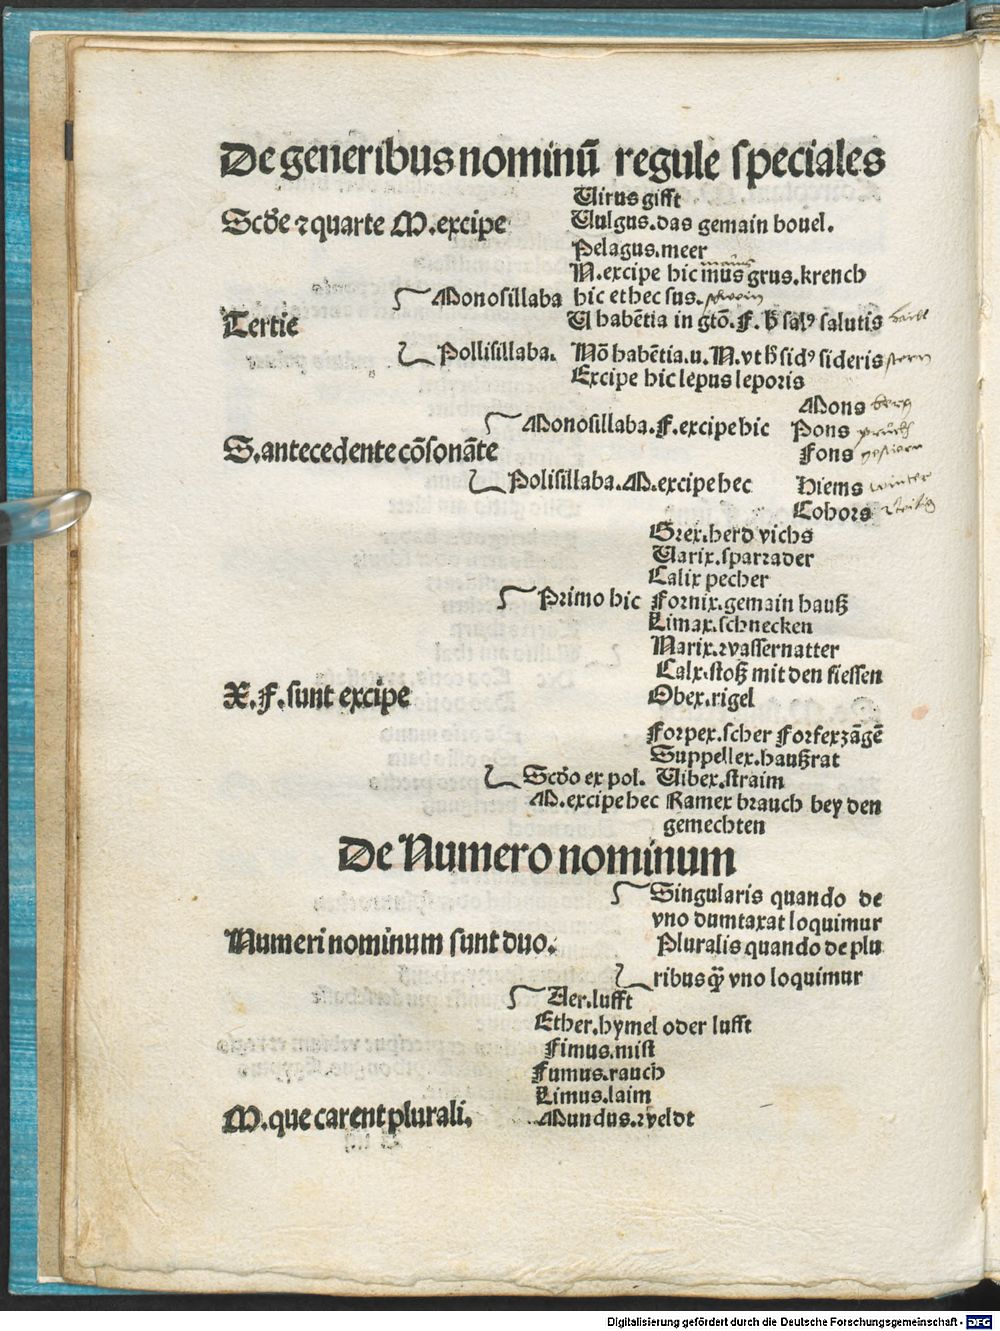 De generibus nominū regule speciales
Virus gifft
Scd̄e ⁊ quarte M. excipe Vulgus. das gemain bouel.
Pelagus. meer
N. excipe hic mus grus. krench
Monosillaba hic et hec sus. schwein
Tertie V habētia in gtō. F. vt salꝰ salutis
Pollisillaba. Nō habētia. u. N. vt sidꝰ sideris stern
Excipe hic lepus leporis
Mons berg
Monosillaba. F. excipe hic Pons pruck
S. antecedente cōsonāte Fons
Polisillaba. M. excipe hec Hiems winter
Cohors
Grex. herd vichs
Varix. sparrader
Calix pecher
Primo hic Fornix. gemain hauß
Limax. schnecken
Narix. wassernatter
Calx. stoß mit den fiessen
X. F. sunt excipe Obex. rigel
Forpex. scher Forfex zāgē
Suppellex. haußrat
Scd̄o ex pol. Vibex. straim
M. excipe hec Ramex brauch bey den
gemechten
De Numero nominum
Singularis quando de
vno dumtaxat loquimur
Numeri nominum sunt duo. Pluralis quando de plu
ribus qꝫ vno loquimur
Aer. lufft
Ether. hymel oder lufft
Fimus. mist
Fumus. rauch
Limus. laim
M. que carent plurali. Mundus. weldt
Digitalisierung gefördert durch die Deutsche Forschungsgemeinschaft - DFG